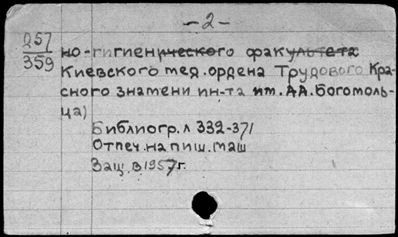 -2-
257 но-гигиенического факультета
359 Киевского мед.ордена Трудового Кра-
сного знамени ин-та им.АА.Богомоль-
ца)
Библиогр.л 332-371
Отпеч.на пиш.маш
Защ.в 1957г.